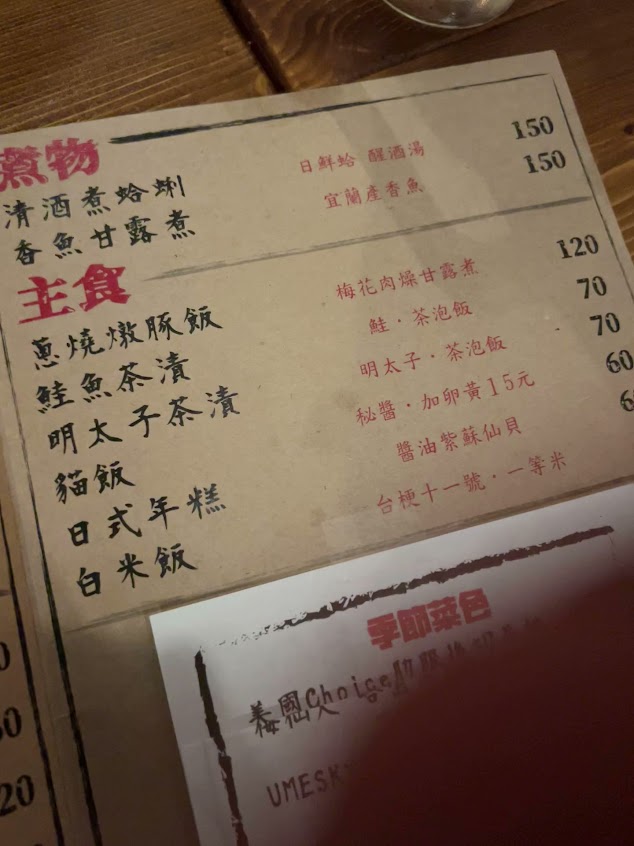 煮物
清酒煮蛤蜊 日鮮蛤 醒酒湯 150
香魚甘露煮 宜蘭產香魚 150
主食
蔥燒燉豚飯 梅花肉燥甘露煮 120
鮭魚茶漬 鮭．茶泡飯 70
明太子茶漬 明太子．茶泡飯 70
貓飯 秘醬．加卵黃15元 60
日式年糕 醬油紫蘇仙貝
白米飯 台梗十一號．一等米
季節菜色
Choice
UMESK
20